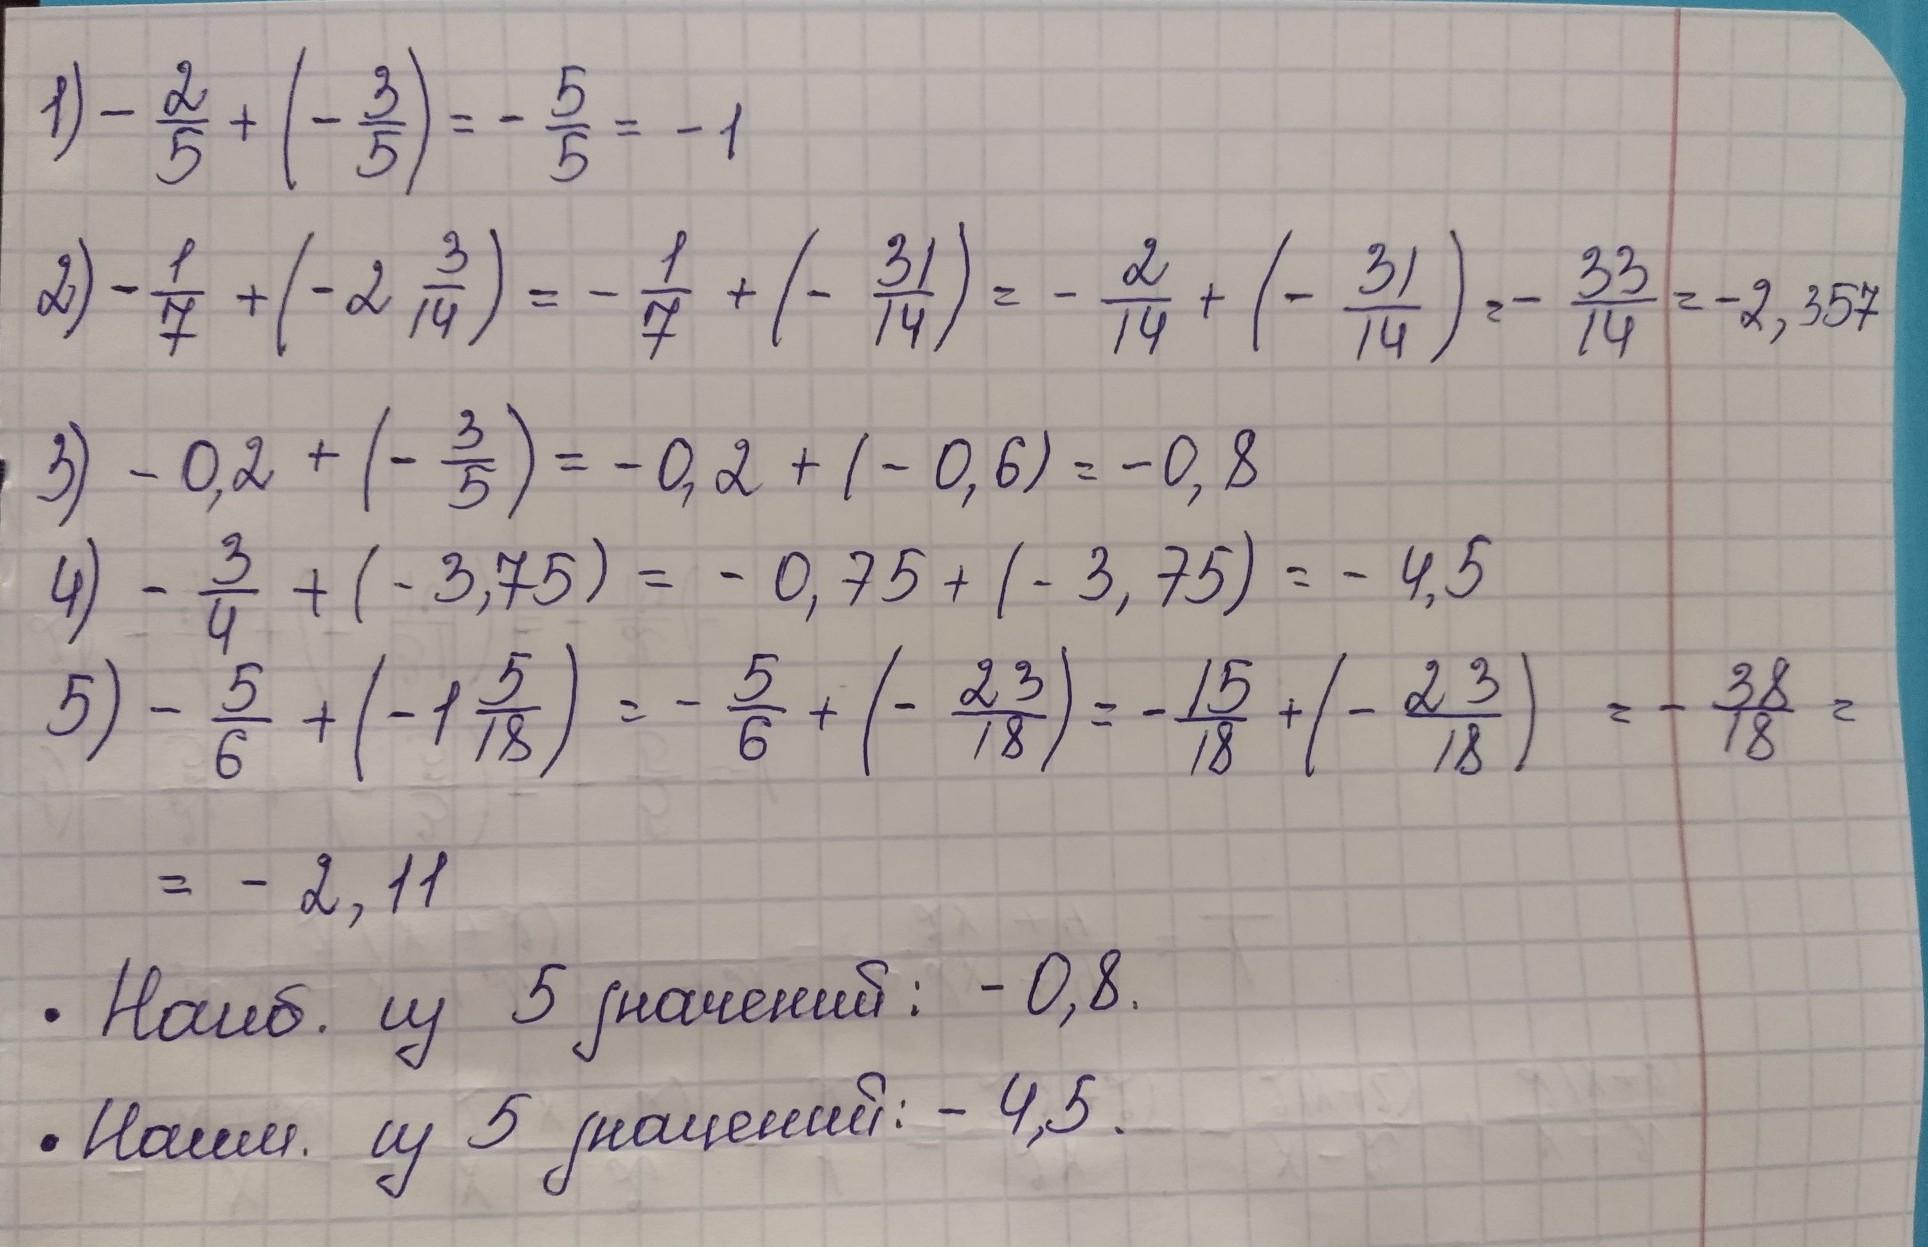 1) - 2/5 + (- 3/5) = - 5/5 = -1
2) - 1/7 + (-2 3/14) = - 1/7 + (- 31/14) = - 2/14 + (- 31/14) = - 33/14 = -2,357
3) -0,2 + (- 3/5) = -0,2 + (-0,6) = -0,8
4) - 3/4 + (-3,75) = -0,75 + (-3,75) = -4,5
5) - 5/6 + (-1 5/18) = - 5/6 + (- 23/18) = - 15/18 + (- 23/18) = - 38/18 =
= -2,11
• Наиб. из 5 значений: -0,8.
• Наим. из 5 значений: -4,5.